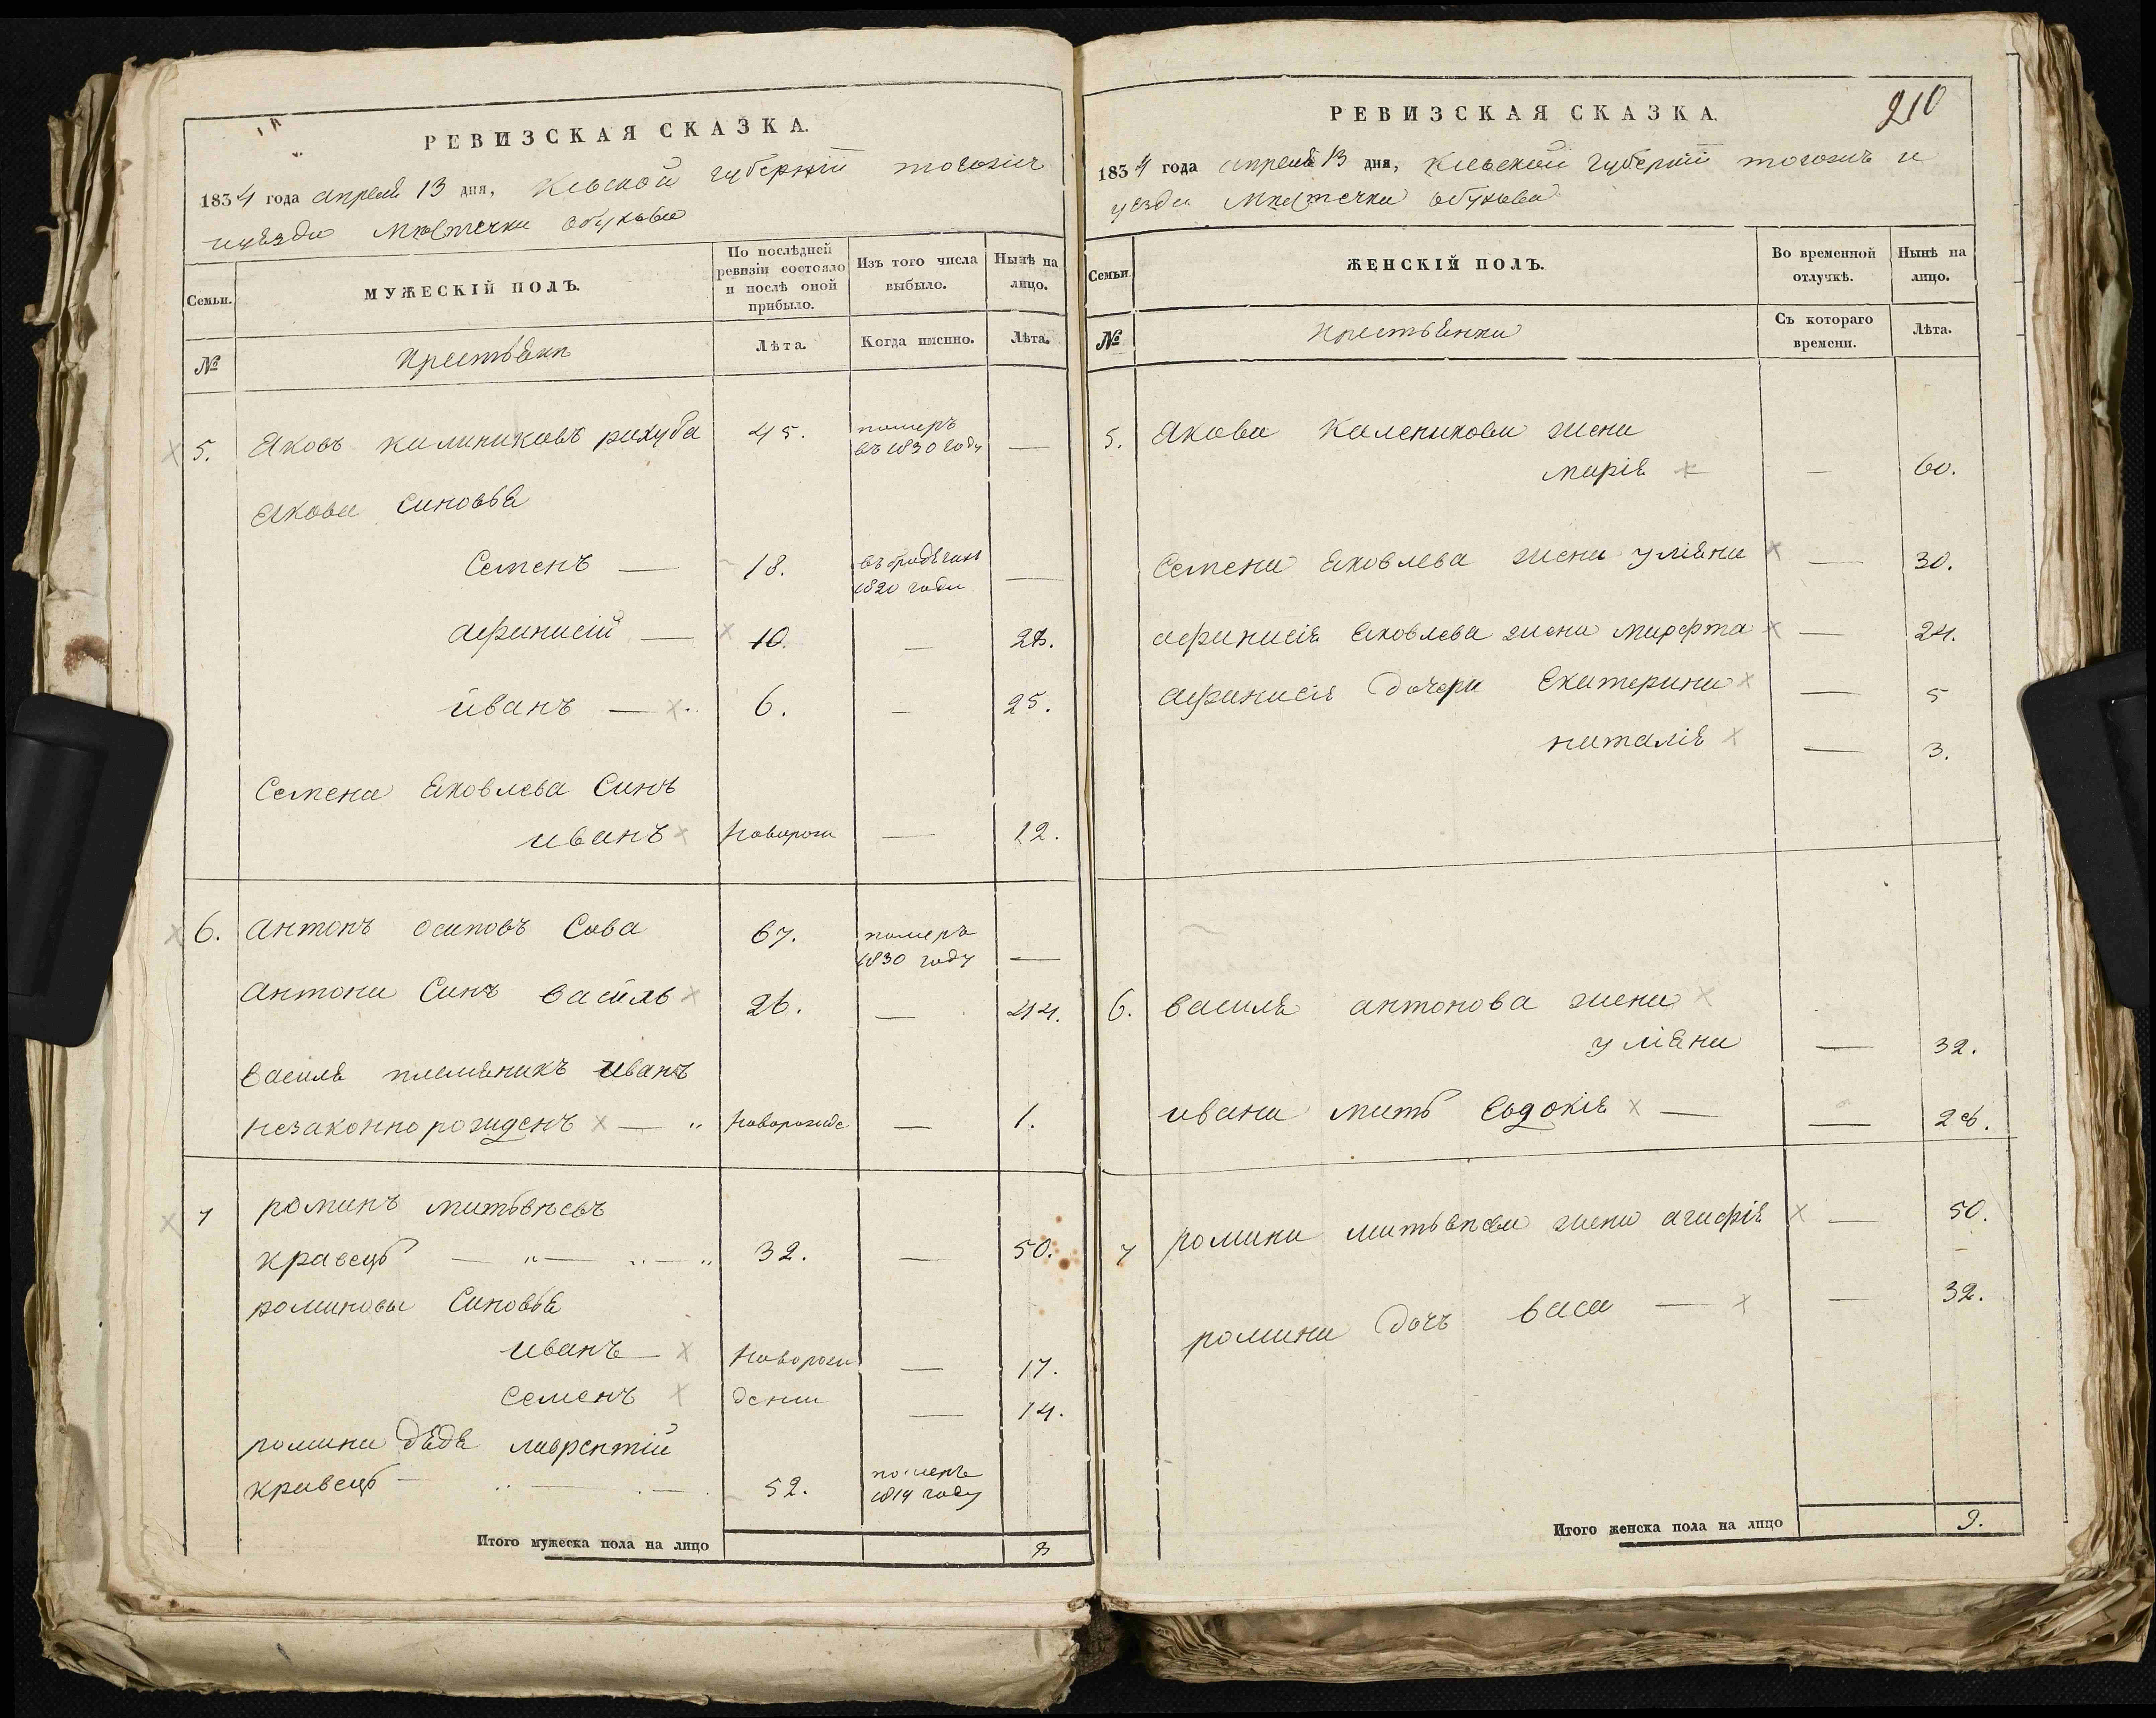 РЕВИЗСКАЯ СКАЗКА.
1834 года апреля 13 дня, Киевской губернїи тогожъ
уезда Местечка обухова
Семьи.
МУЖЕСКІЙ ПОЛЪ.
По послѣдней ревизіи состояло и послѣ оной прибыло.
Изъ того числа выбыло.
Нынѣ на лицо.
№
Лѣта.
Когда именно.
Лѣта.
5. Яковъ калениковъ рахуба 45. померъ въ 1830 году —
Якова Синовья
Семенъ — 18. 1820 года —
афанасій — 10. — 28.
иванъ — 6. — 25.
Семена Яковлева Синъ
иванъ новорож — 12.
6. антонъ осиповъ Сова 67. померъ 1830 году —
антона Синъ василь 26. — 44.
василя племяникъ иванъ
незаконно рожденъ — новорожде — 1.
7 романъ матвѣевъ
кравець — 32. — 50.
романовы Синовья
иванъ — новорож — 17.
Семенъ дении — 14.
романа дядя лаврентій
кравець — 52. померъ 1814 году
Итого мужеска пола на лицо 8
РЕВИЗСКАЯ СКАЗКА.
210
1834 года апреля 13 дня, Киевской губернїи тогожъ и
уезда Местечка обухова
Семьи.
ЖЕНСКІЙ ПОЛЪ.
Во временной отлучкѣ.
Нынѣ на лицо.
№
Съ котораго времени.
Лѣта.
5. Якова Каленикова жена
марія — 60.
Семена Яковлева жена уляна — 30.
афанасія Яковлева жена марфта — 24.
афанасія дочери Екатерина — 5
наталія — 3.
6. василя антонова жена
уляна — 32.
ивана мать Евдокія — — 28.
7 романа матвеева жена агафія — 50.
романа дочь васа — — 32.
Итого женска пола на лицо 9.